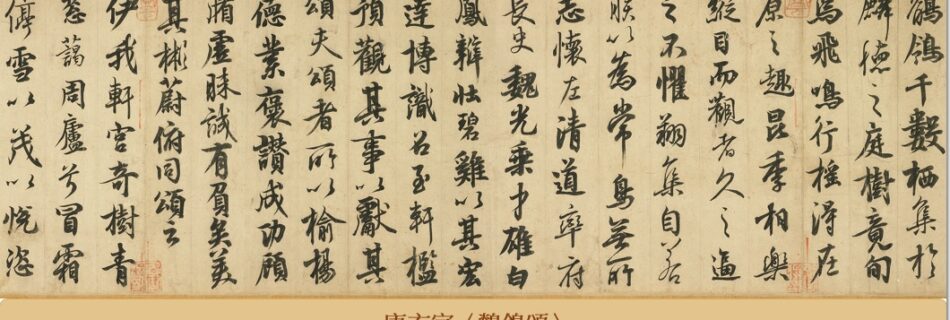 鶺鴒千數栖集於
麟德之庭樹竟旬
焉飛鳴行搖得在
原之趣昆季相樂
縱目而觀者久之逼
之不懼翔集自若
朕以為常鳥無所
志懷左清道率府
長史魏光乘才雄白
鳳辯壯碧雞以其宏
達博識召至軒檻
預觀其事以獻其
頌夫頌者所以揄揚
德業褒讚成功顧
循虛昧誠有負矣美
其彬蔚俯同頌云
伊我軒宮奇樹青
蔥藹周廬兮冒霜
停雪以茂以悅恣
唐玄宗《鶺鴒頌》